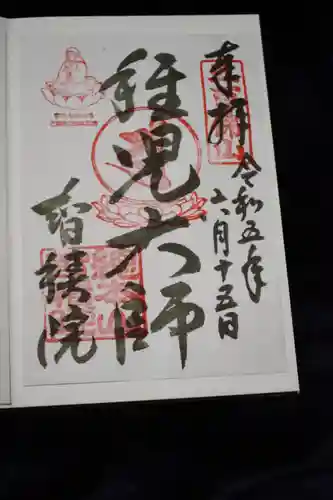 奉拝
令和五年
六月十五日
稚児大師
智積院